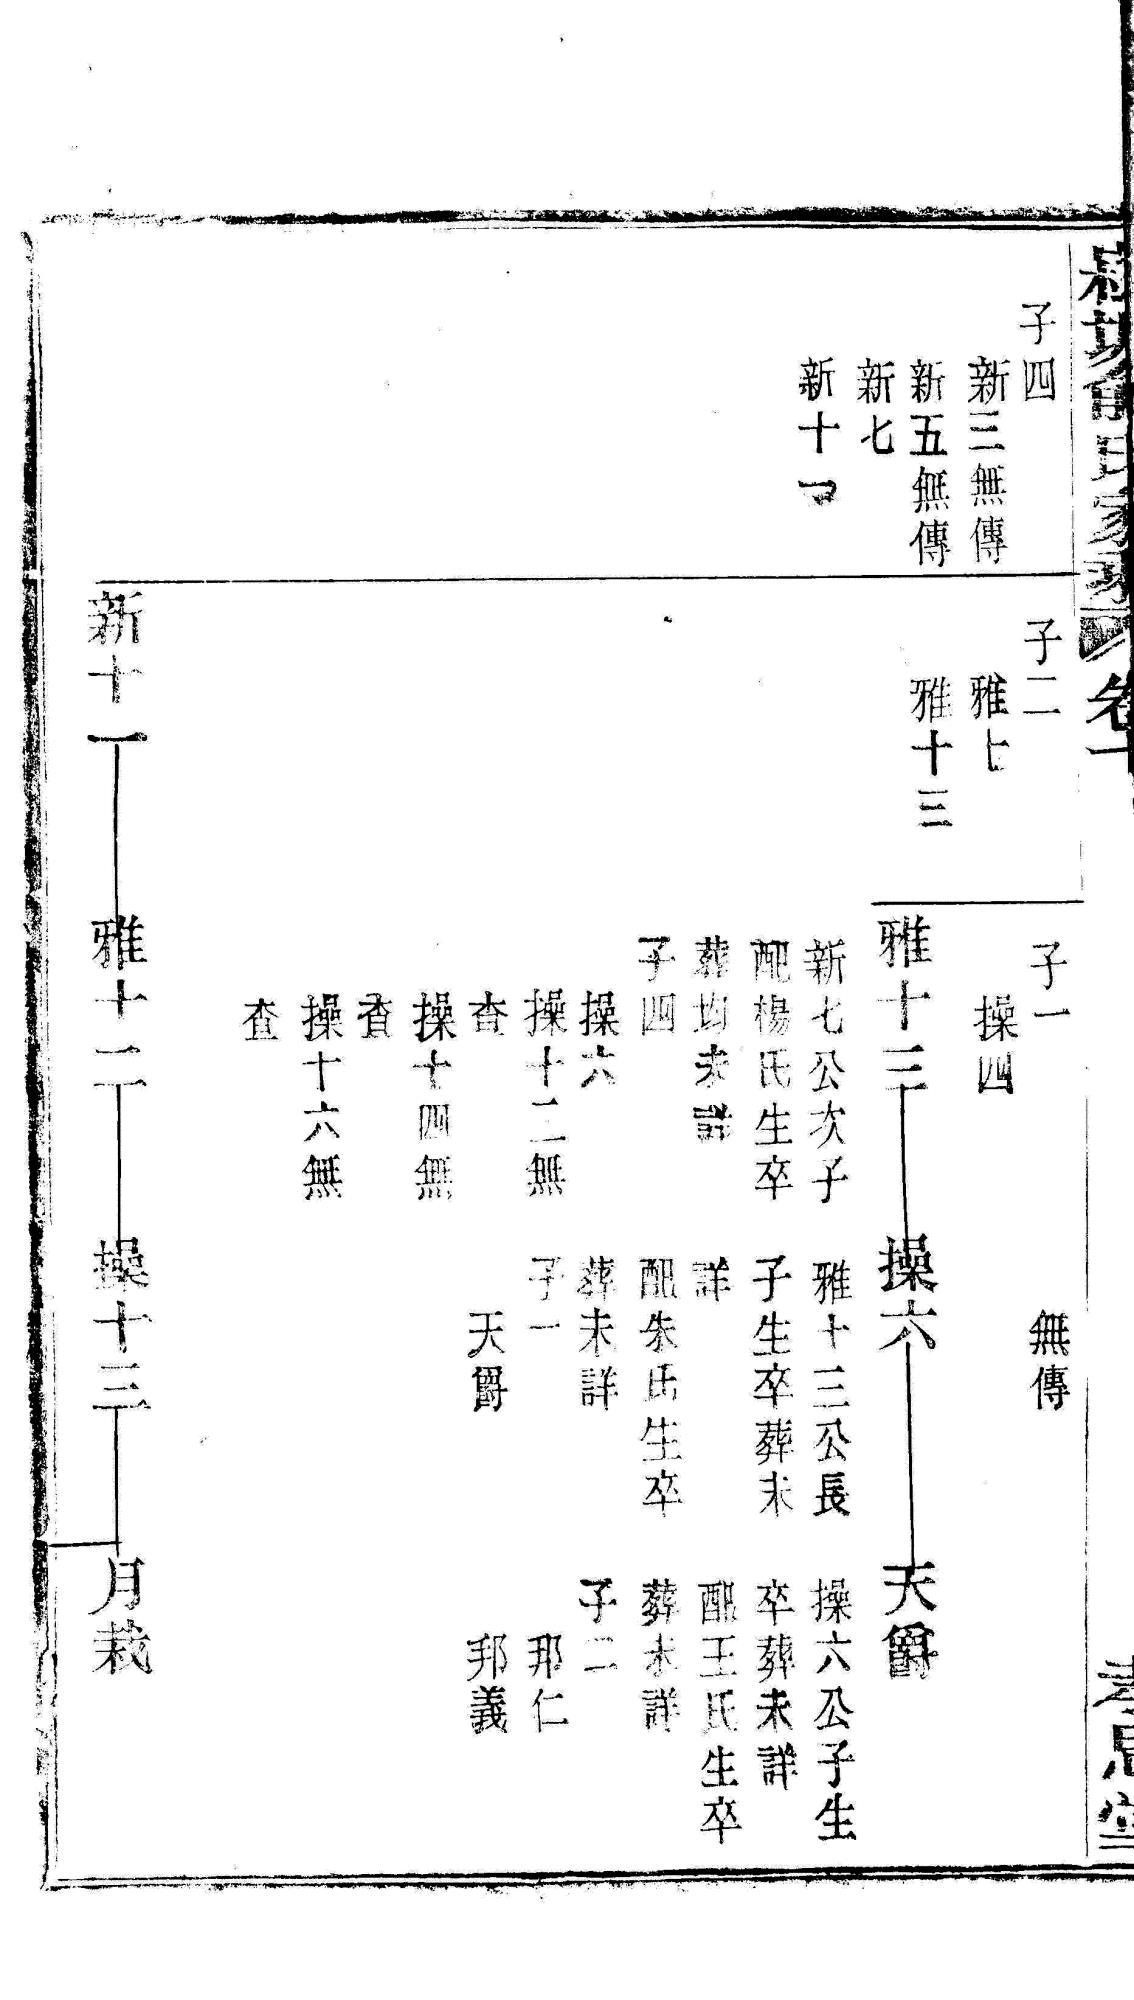 氏家
卷十
孝思堂
子四
新三無傳
新五無傳
新七
新十一
子二
雅七
雅十三
子一
操四
無傳
雅十三
操六
天爵
新七公次子
配楊氏生卒
葬均未詳
子四
操六
操十二無
查
操十四無
查
操十六無
查
雅十三公長
子生卒葬未
詳
配朱氏生卒
葬未詳
子一
天爵
操六公子生
卒葬未詳
配王氏生卒
葬未詳
子二
邦仁
邦義
新十一
雅十二
操十三
月栽